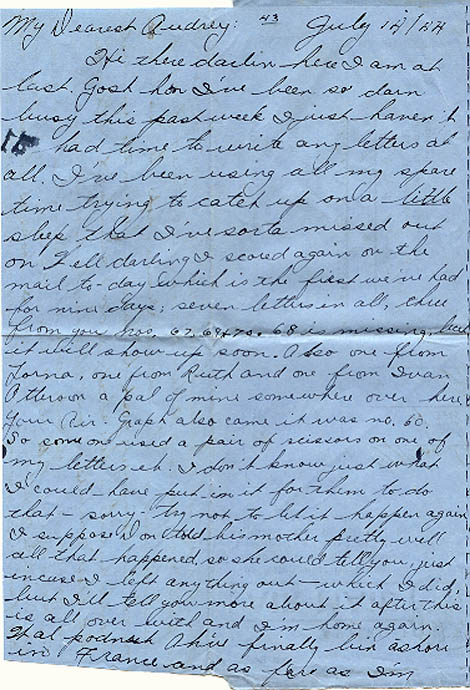 My Dearest Audrey: 43 July 14/44
Hi there darlin here I am at
last. Gosh hon I've been so darn
busy this past week I just haven't
had time to write any letters at
all. I've been using all my spare
time trying to catch up on a little
sleep that I've sorta missed out
on Well darling I scored again on the
mail to-day which is the first we've had
for nine days; seven letters in all, three
from you nos. 67, 69 + 70. 68 is missing,
it will show up soon. Also one from
Lorna, one from Ruth and one from Ivan
Otterson a pal of mine somewhere over here.
Your Air-Graph also came it was no. 60.
So someone used a pair of scissors on one of
my letters eh. I don't know just what
I could-have put-in it for them to do
that - sorry - try not to let it happen again
I suppose Don told his mother pretty well
all that happened so she could tell you just
incase I left anything out - which I did,
but I'll tell you more about it after this
is all over with and I'm home again.
Wal podnuh Ah've finally bin ashore
in France and as far as I'm